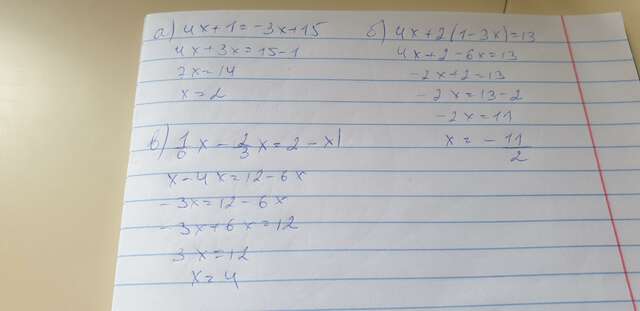 а) 4x+1=-3x+15
4x+3x=15-1
7x=14
x=2
б) 4x+2(1-3x)=13
4x+2-6x=13
-2x+2=13
-2x=13-2
-2x=11
x= -11/2
в) 1/6 x - 2/3 x = 2 - x|
x-4x=12-6x
-3x=12-6x
-3x+6x=12
3x=12
x=4